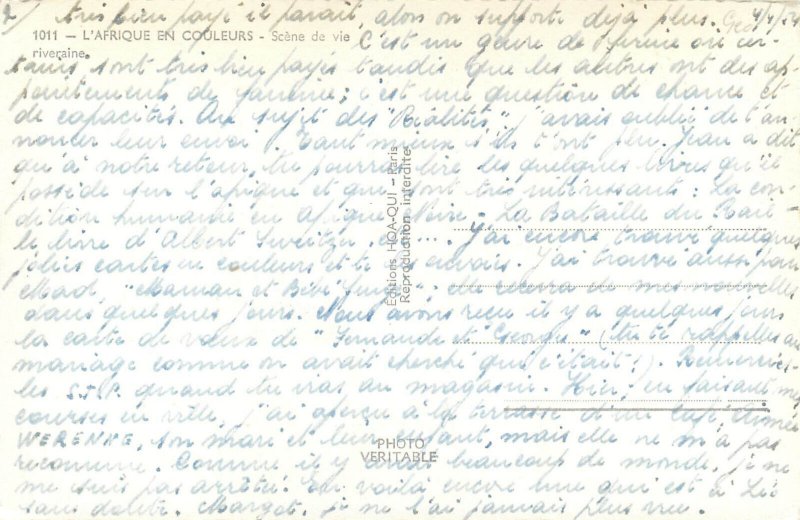 2/ très bien payé il paraît, alors on supporte déjà plus. 4/1/54
1011 — L'AFRIQUE EN COULEURS - Scène de vie
riveraine.
C'est un genre de où cer-
tains sont très bien payés tandis que les autres ont des ap-
pointements de famine; c'est une question de chance et
de capacités. Au sujet des "Réalités" j'avais oublié de t'an-
noncer leur envoi. Tant mieux s'ils t'ont plu. Jean a dit
qu'à notre retour, tu pourras lire les quelques livres qu'il
possède sur l'Afrique et qui sont très intéressants : La con-
dition humaine en Afrique Noire - La Bataille du Rail -
le livre d'Albert etc.... J'ai encore trouvé quelques
jolies cartes en couleurs et te les envois. J'ai trouvé aussi pour
Mad, "Maman et Bébé Singe". Elle recevra de mes nouvelles
dans quelques jours. Nous avons reçu il y a quelques jours
la carte de vœux de "Fernande et Georges" (tu te rappelles au
mariage comme on avait cherché qui c'était!). Remercies-
les S.T.P. quand tu iras au magasin. Hier, en faisant mes
courses en ville, j'ai aperçu à la terrasse d'un café Aimée
WERENKE, son mari et leur enfant, mais elle ne m'a pas
reconnue. Comme il y avait beaucoup de monde, je ne
me suis pas arrêtée. En voilà encore une qui est à Léo
sans doute. Margot, je ne l'ai jamais plus vue.
Éditions HOA-QUI - Paris
Reproduction interdite
PHOTO
VÉRITABLE